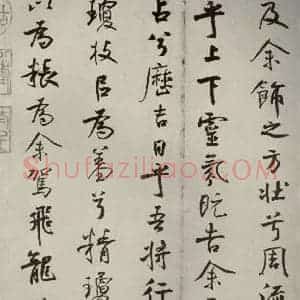 及余飾之方壯兮周流
乎上下靈氛既告余
占兮歷吉日乎吾將行
瓊枝㠯為羞兮精瓊
以為粻為余駕飛龍
Shufaziliao.com